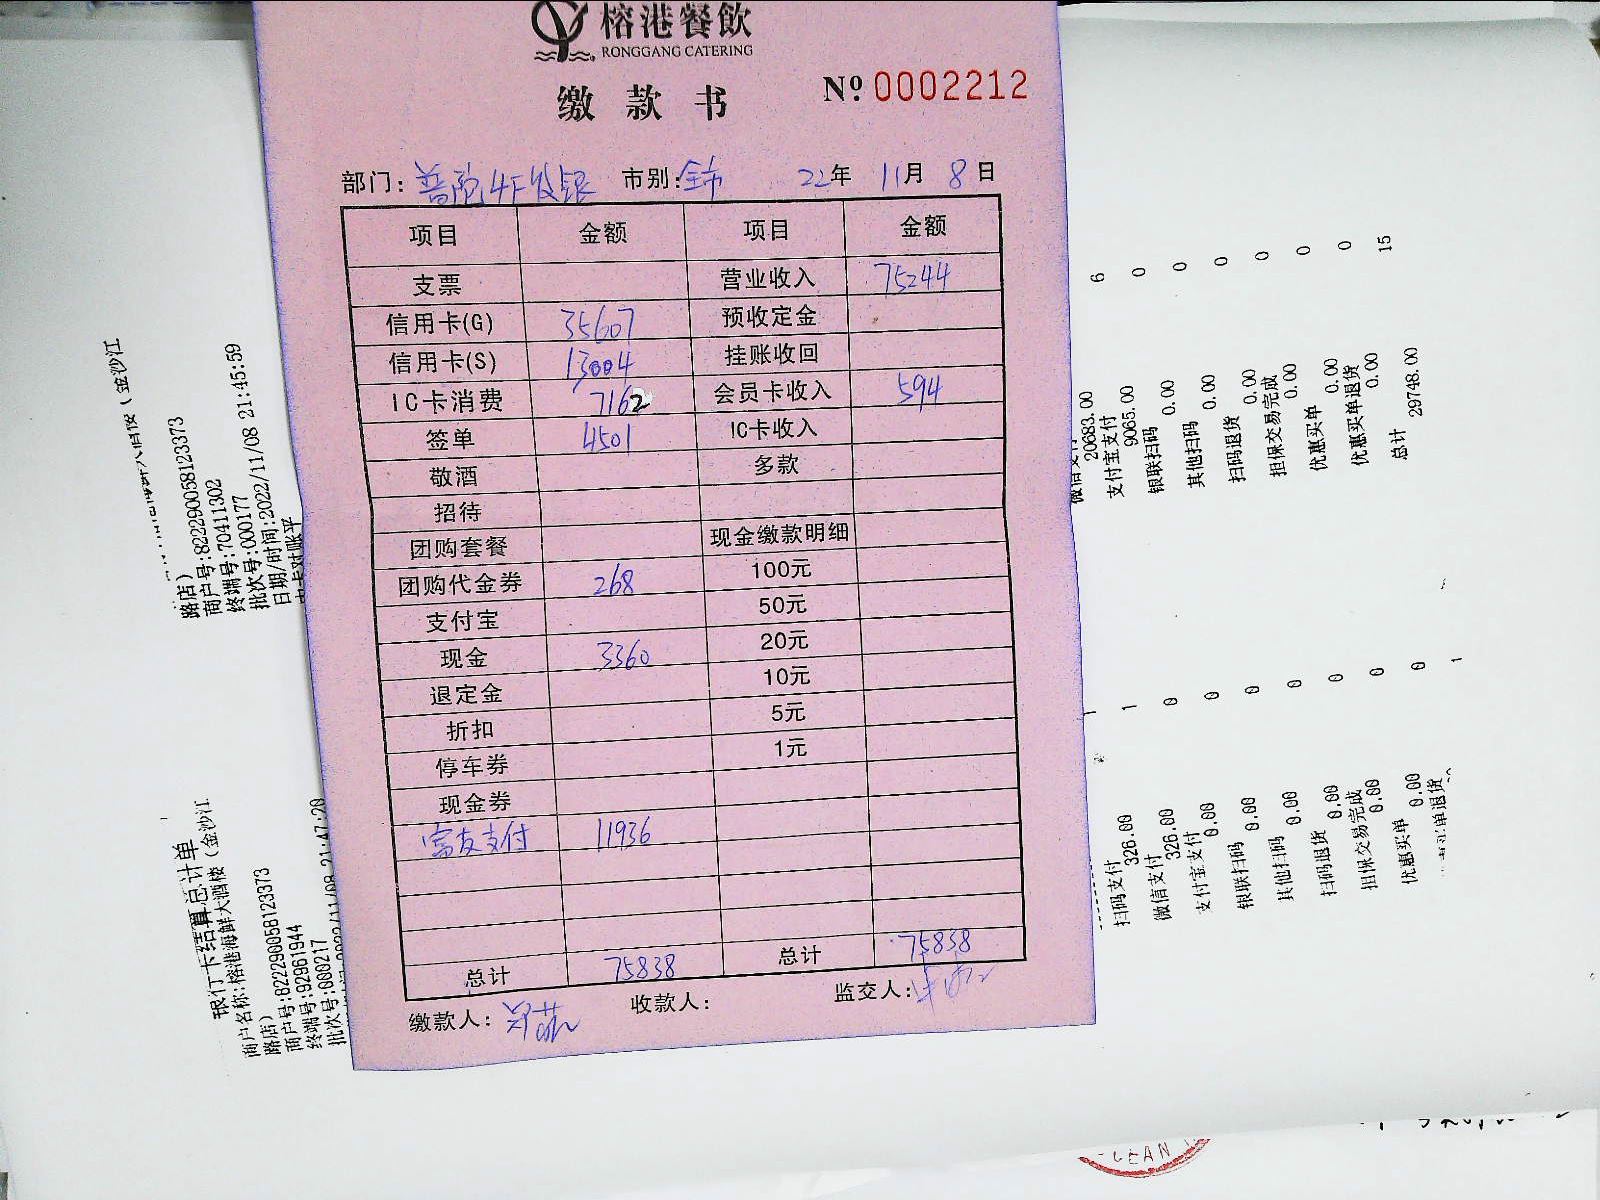 榕港餐飲
RONGGANG CATERING
缴款书
Nº 0002212
部门: 普陀4F收银 市别: 全市 22年 11月 8日
项目 金额 项目 金额
支票 营业收入 75244
信用卡(G) 35607 预收定金
信用卡(S) 13004 挂账收回
IC卡消费 7162 会员卡收入 594
签单 4501 IC卡收入
敬酒 多款
招待
团购套餐 现金缴款明细
团购代金券 268 100元
支付宝 50元
现金 3360 20元
退定金 10元
折扣 5元
停车券 1元
现金券
富友支付 11936
总计 75838 总计 75838
缴款人: 收款人: 监交人:
路店)
商户号:822290058123373
终端号:70411302
批次号:000177
日期/时间:2022/11/08 21:45:59
银行卡结算总计单
商户名称:榕港海鲜大酒楼(金沙江
路店)
商户号:822290058123373
终端号:92961944
批次号:000217
微信支付 6
20683.00
支付宝支付 0
9065.00
银联扫码 0
0.00
其他扫码 0
0.00
扫码退货 0
0.00
担保交易完成 0
0.00
优惠买单 0
0.00
优惠买单退货
0.00
总计 15
29748.00
扫码支付 1
326.00
微信支付 1
326.00
支付宝支付 0
0.00
银联扫码 0
0.00
其他扫码 0
0.00
扫码退货 0
0.00
担保交易完成 0
0.00
优惠买单 0
0.00